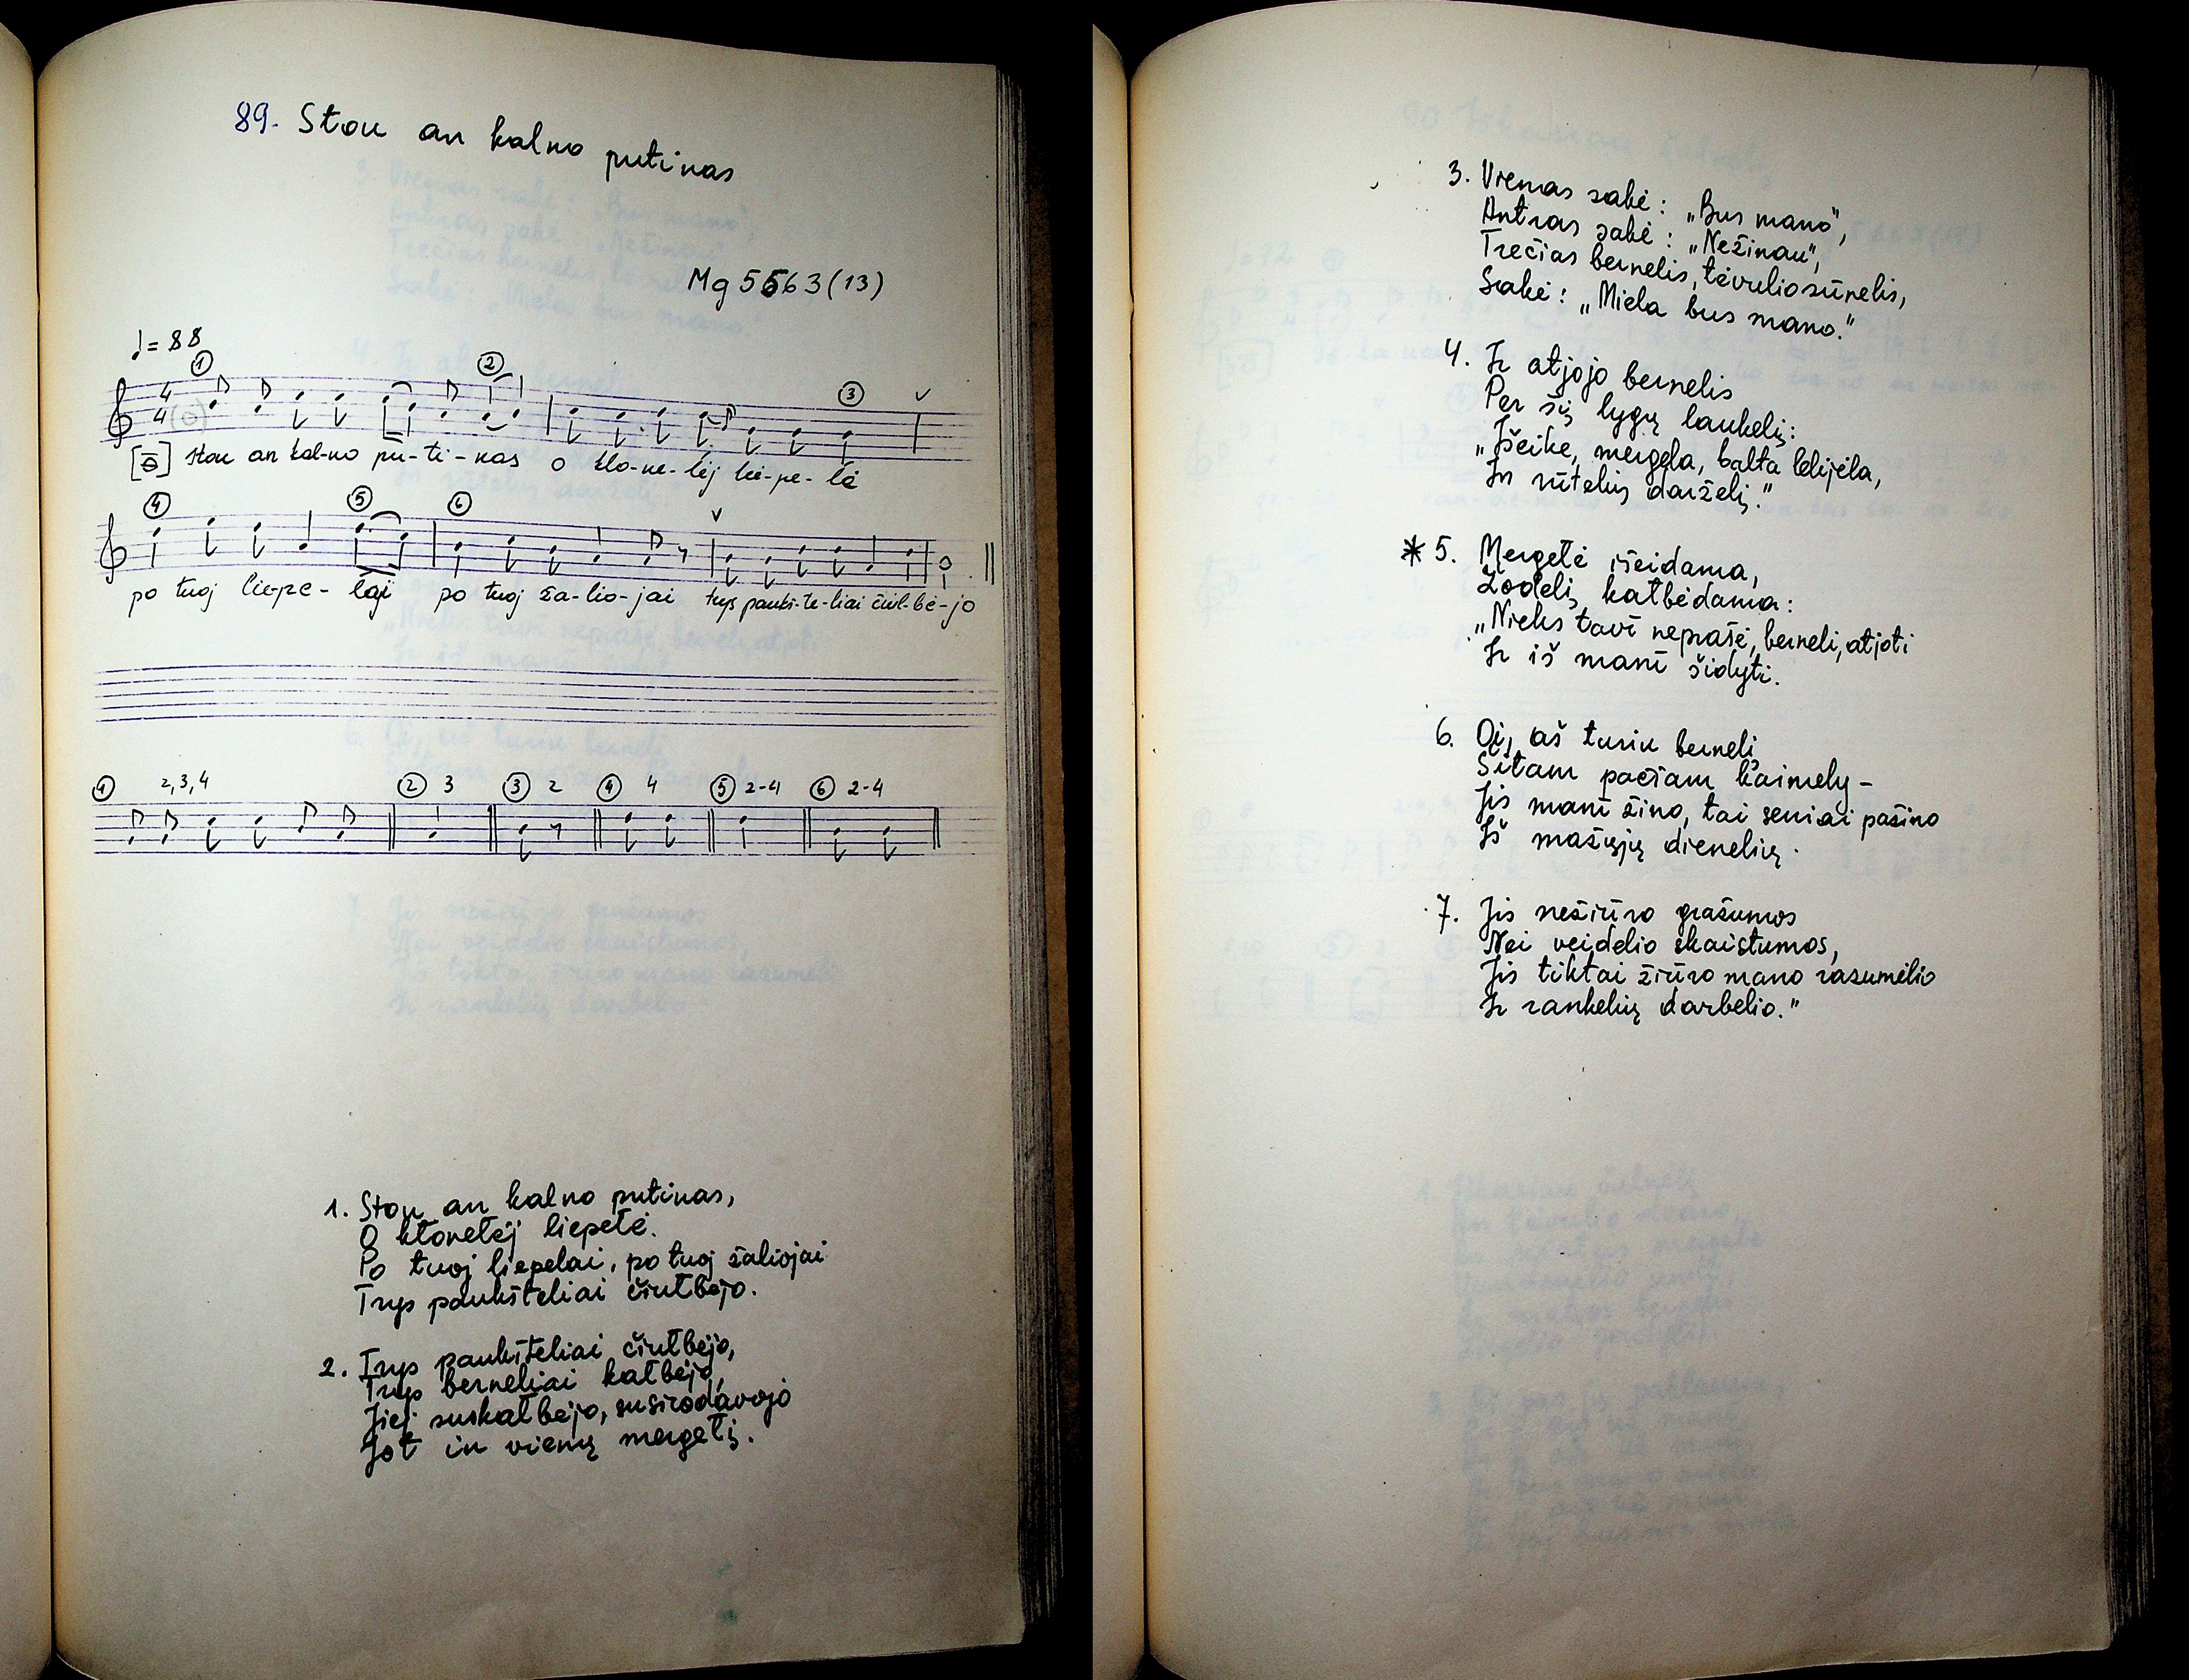 89. Stou an kalno putinas
Mg 5563 (13)
♩= 88
① ② ③ v
4
4
[ō] Stou an kal-no pū-ti-nas o klo-ne-lėj lie-pe-lė
④ ⑤ ⑥ v
po tuoj lie-pe-laj po tuoj ža-lio-jai trys paukš-te-liai čiul-bė-jo
① 2,3,4 ② 3 ③ 2 ④ 4 ⑤ 2-4 ⑥ 2-4
1. Stou an kalno putinas,
O kłonełėj liepełė.
Po tuoj liepelai, po tuoj žaliojai
Trys paukšteliai čiułbėjo.
2. Trys paukšteliai čiułbėjo,
Trys berneliai kałbėjo,
Jiej suskałbėjo, susirodavojo
Jot in vienų mergełį.
3. Vienas sakė: „Bus mano",
Antras sakė: „Nežinau",
Trečias bernelis, tėvulio sūnelis,
Sakė: „Miela bus mano."
4. Ir atjojo bernelis
Per šį lygų laukelį:
„Išeike, mergela, balta lelijėla,
In rūtelių darželį."
* 5. Mergełė išeidama,
Žodelį kałbėdama:
„Nieks tavī neprašė, berneli, atjoti
Ir iš manī šidyti.
6. Oi, aš turiu bernelį
Šitam pačiam kaimely -
Jis manī žino, tai seniai pažino
Iš mažųjų dienelių.
7. Jis nežiūro gražumos
Nei veidelio skaistumos,
Jis tiktai žiūro mano razumėlio
Ir rankelių darbelio."